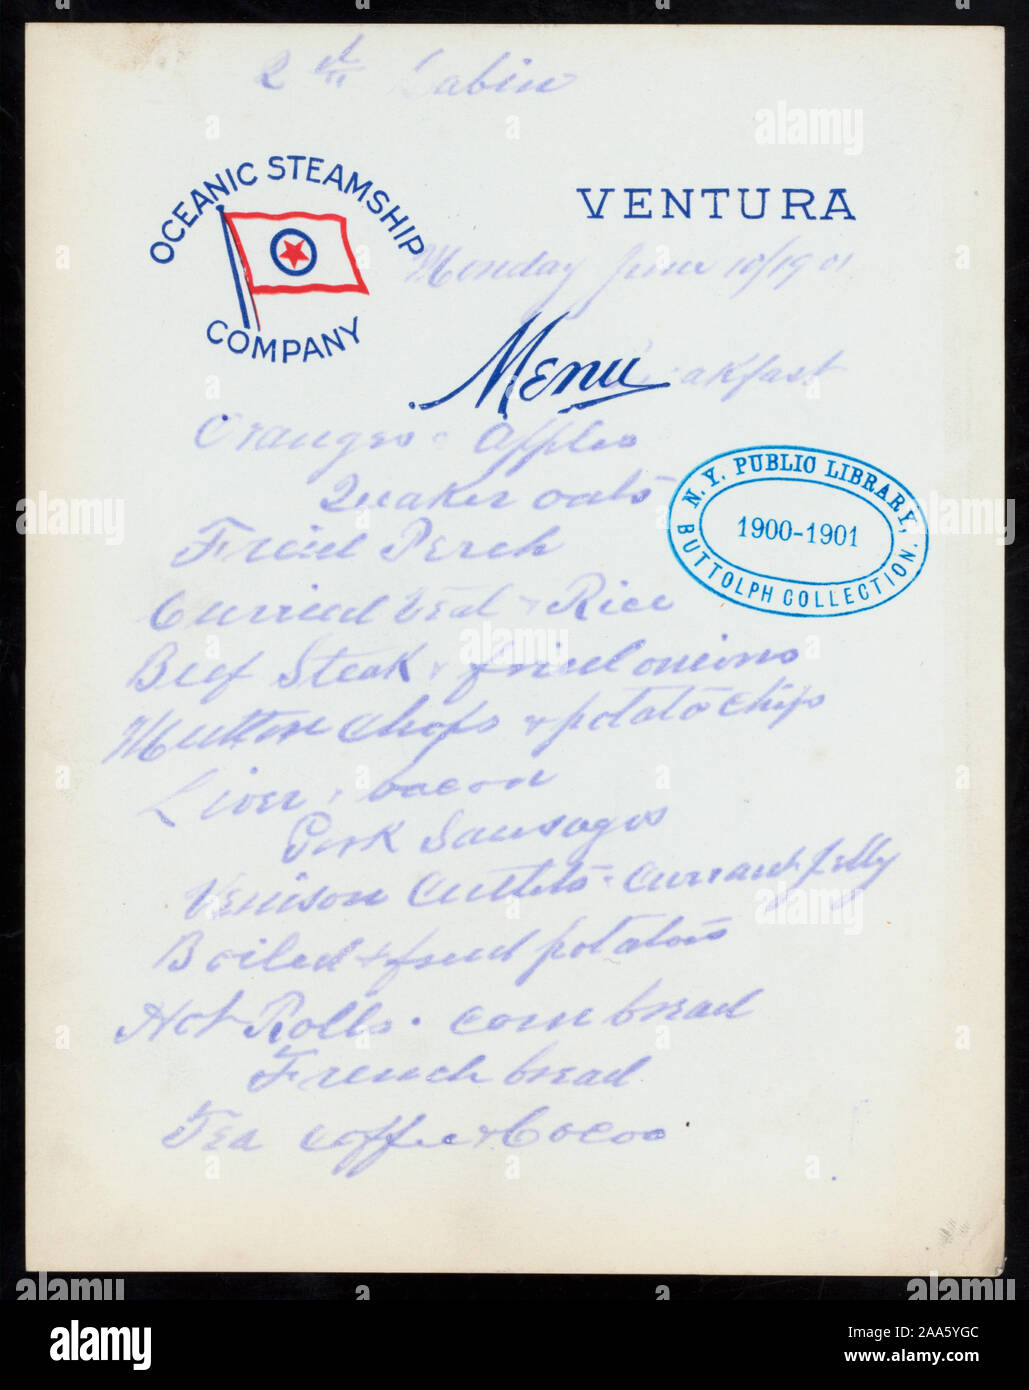 2nd Cabin
OCEANIC STEAMSHIP
COMPANY
VENTURA
Monday June 10/1901
Menu
Breakfast
Oranges · Apples
Quaker oats
Fried Perch
Curried Veal & Rice
Beef Steak & fried onions
Mutton Chops & potato chips
Liver & bacon
Pork Sausages
Venison Cutlets · Currant Jelly
Boiled & fried potatoes
Hot Rolls · corn bread
French bread
Tea coffee & Cocoa
N.Y. PUBLIC LIBRARY,
1900-1901
BUTTOLPH COLLECTION.
alamy
alamy
Image ID: 2AA5YGC
www.alamy.com